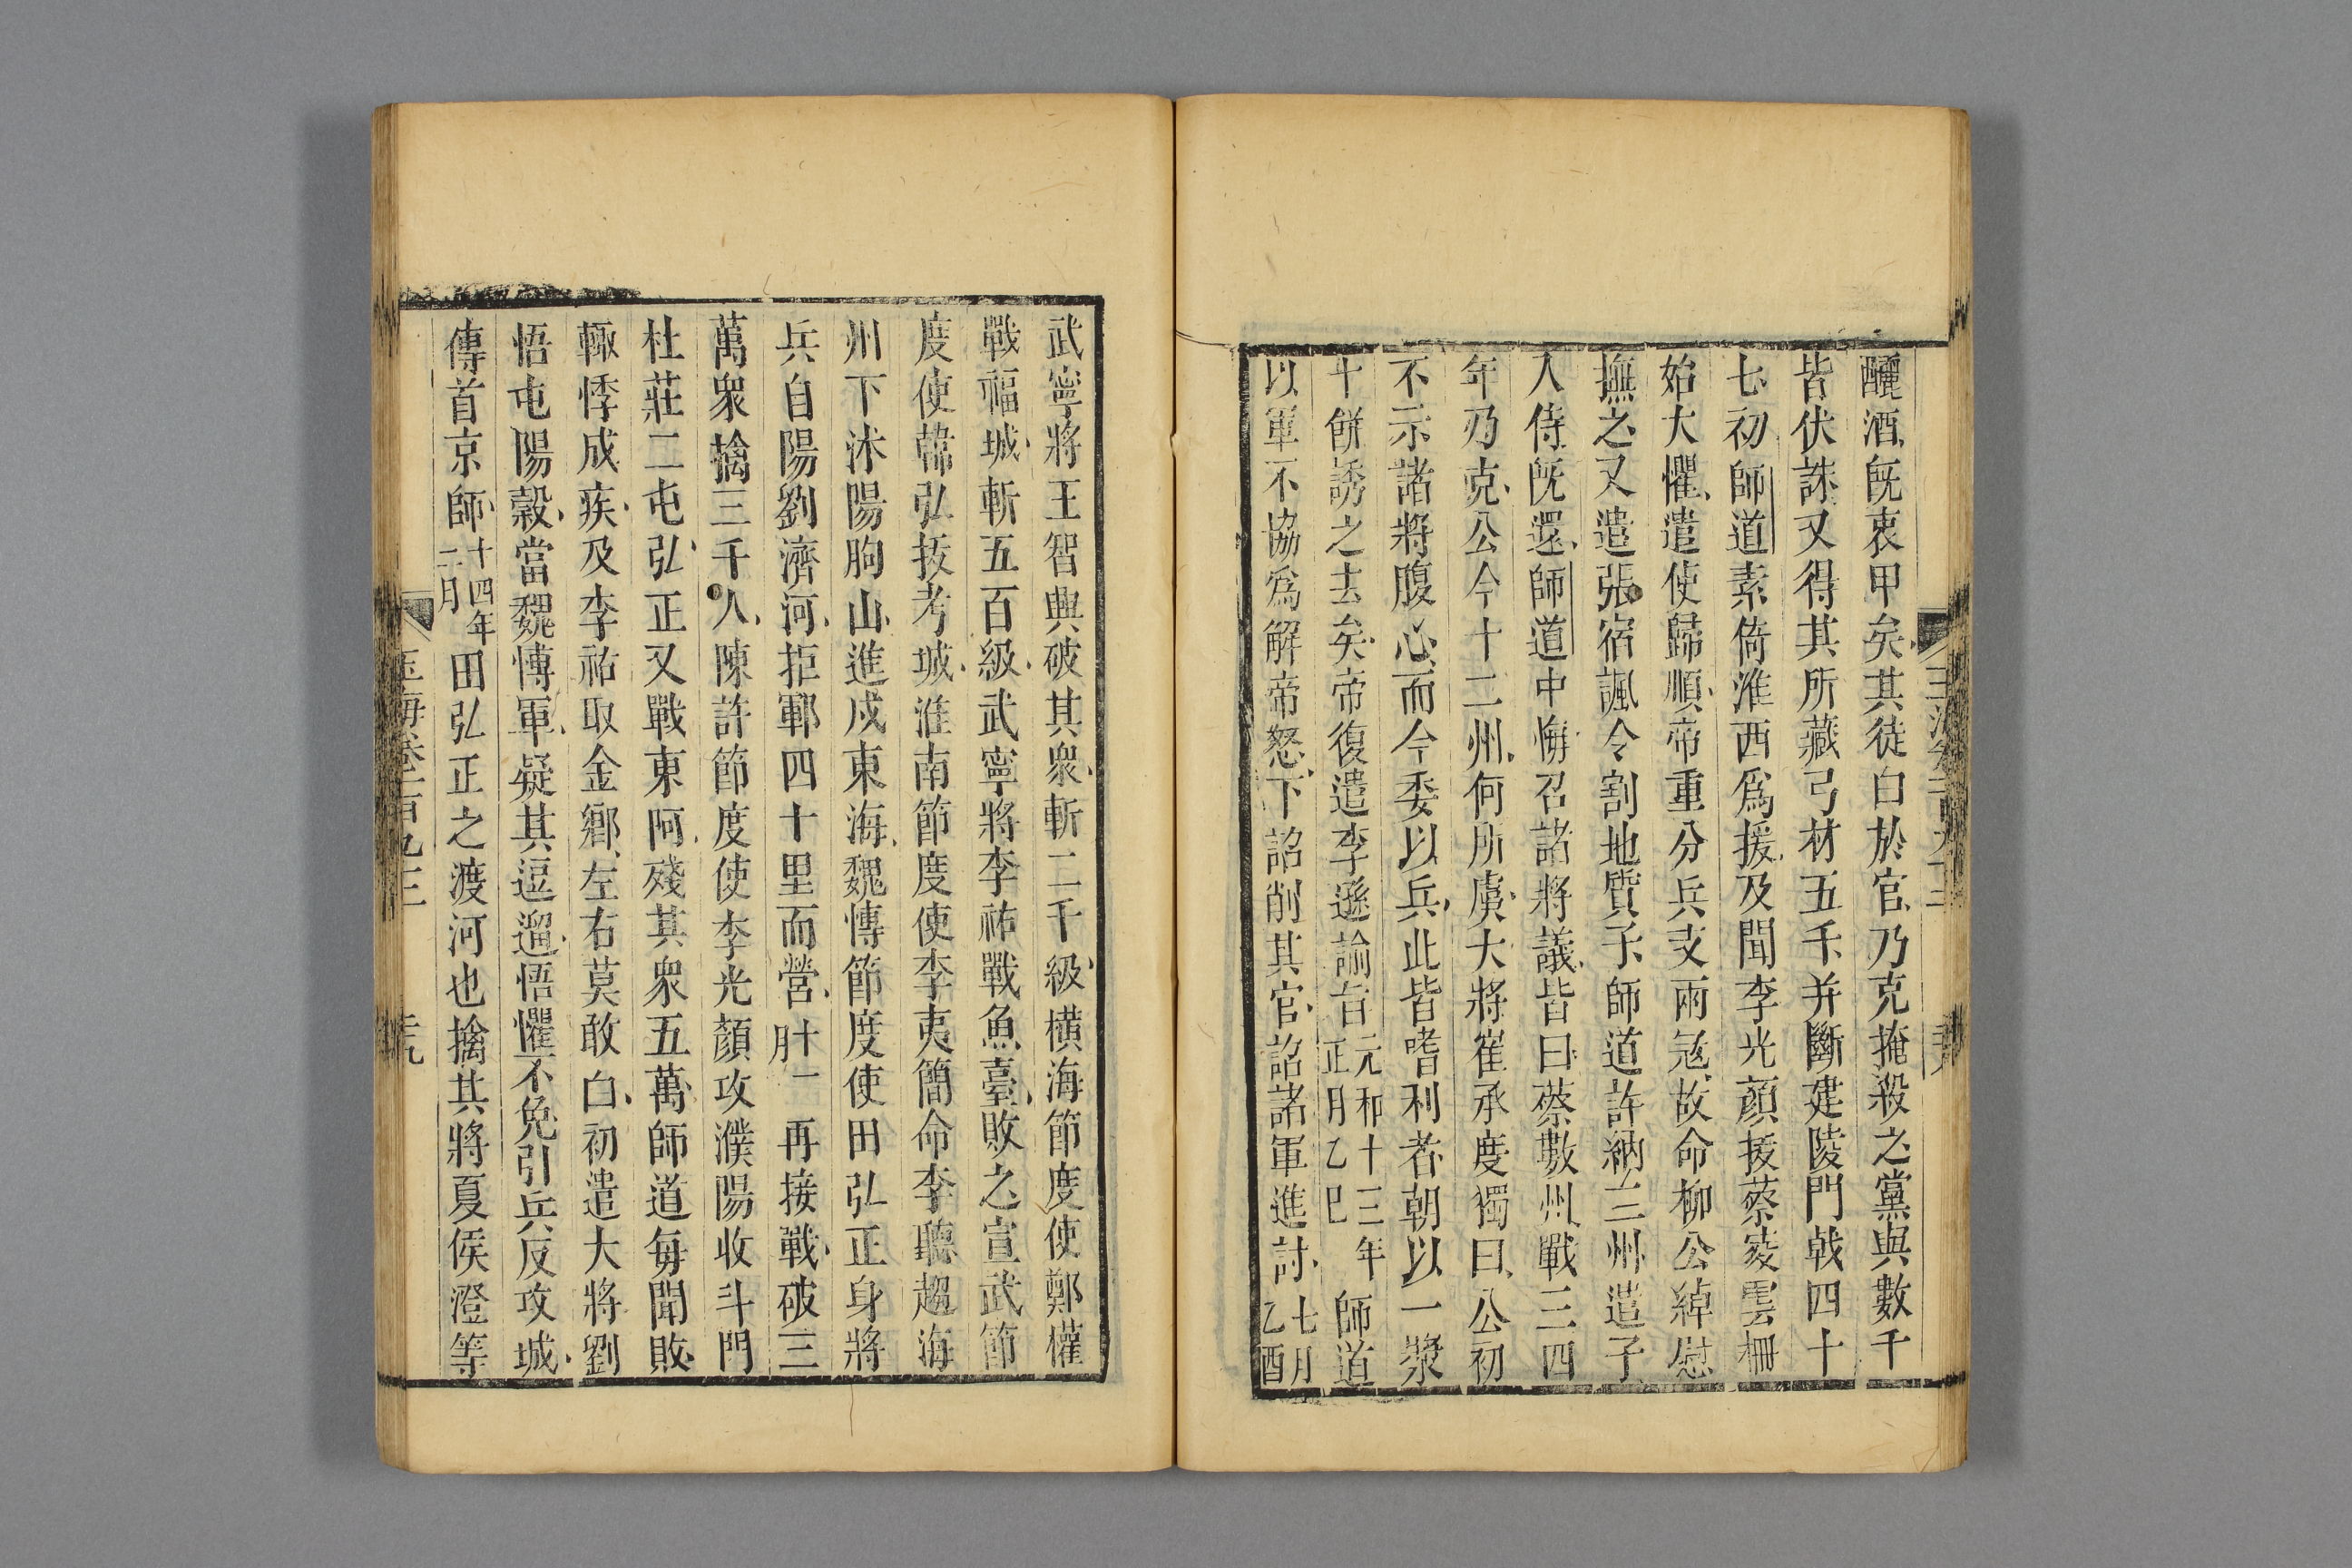 釃酒既衷甲矣其徒白於官乃克掩殺之黨與數千
皆伏誅又得其所藏弓材五千并斷建陵門戟四十
七初師道素倚淮西爲援及聞李光顔拔蔡凌雲柵
始大懼遣使歸順帝重分兵支兩寇故命柳公綽慰
撫之又遣張宿諷令割地質子師道許納三州遣子
入侍既還師道中悔召諸將議皆曰蔡數州戰三四
年乃克公今十二州何所虞大將崔承度獨曰公初
不示諸將腹心而今委以兵此皆嗜利者朝以一漿
十餅誘之去矣帝復遣李遜諭旨元和十三年正月乙巳師道
以軍不協爲解帝怒下詔削其官詔諸軍進討七月乙酉
武寧將王智興破其衆斬二千級橫海節度使鄭權
戰福城斬五百級武寧將李祐戰魚臺敗之宣武節
度使韓弘拔考城淮南節度使李夷簡命李聽趨海
州下沭陽朐山進戍東海魏博節度使田弘正身將
兵自陽劉濟河拒鄆四十里而營十一月再接戰破三
萬衆擒三千人陳許節度使李光顔攻濮陽收斗門
杜莊二屯弘正又戰東阿殘其衆五萬師道每聞敗
輒悸成疾及李祐取金鄉左右莫敢白初遣大將劉
悟屯陽穀當魏博軍疑其逗遛悟懼不免引兵反攻城
傳首京師十四年二月田弘正之渡河也擒其將夏侯澄等
玉海卷一百九十三